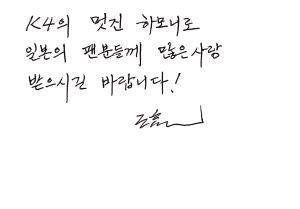 K4의 멋진 하모니로
일본의 팬분들께 많은사랑
받으시긴 바랍니다!